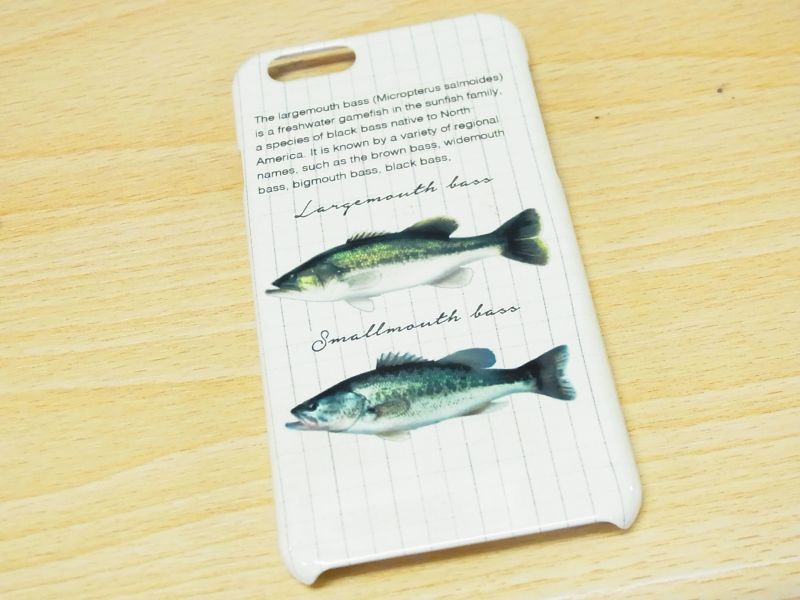 The largemouth bass (Micropterus salmoides)
is a freshwater gamefish in the sunfish family,
a species of black bass native to North
America. It is known by a variety of regional
names, such as the brown bass, widemouth
bass, bigmouth bass, black bass,
Largemouth bass
Smallmouth bass